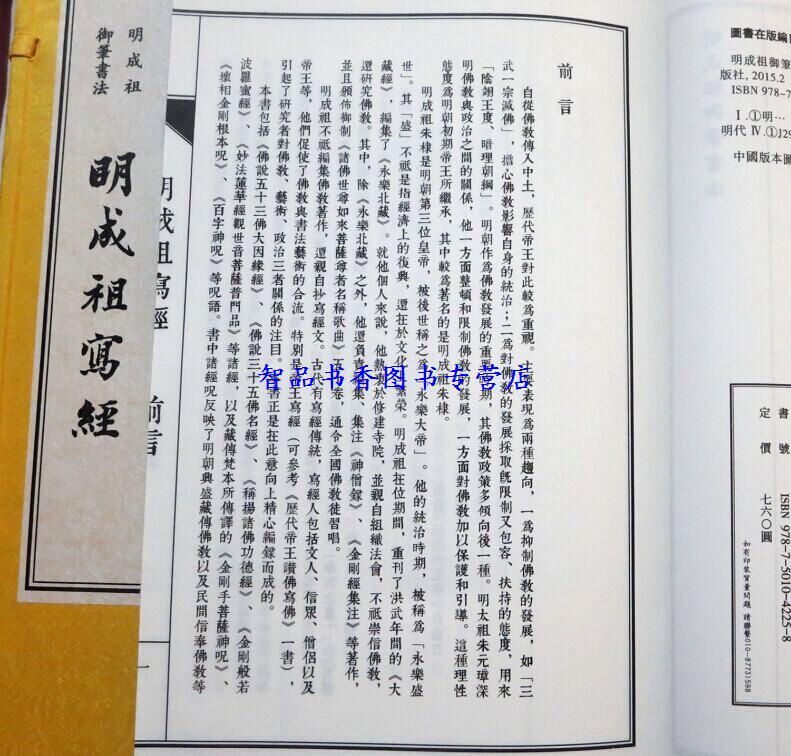 明成祖
御筆書法
明成祖寫經
明成祖寫經
前言
一
前言
自從佛教傳入中土，歷代帝王對此較為重視。主要表現為兩種趨向，一為抑制佛教的發展，如「三
武一宗滅佛」，擔心佛教影響自身的統治；二為對佛教的發展採取既限制又包容、扶持的態度，用來
「陰翊王度、暗理朝綱」。明朝作為佛教發展的重要時期，其佛教政策多傾向後一種。明太祖朱元璋深
明佛教與政治之間的關係，他一方面整頓和限制佛教的發展，一方面對佛教加以保護和引導。這種理性
態度為明朝初期帝王所繼承，其中較為著名的是明成祖朱棣。
明成祖朱棣是明朝第三位皇帝，被後世稱之為「永樂大帝」。他的統治時期，被稱為「永樂盛
世」。其「盛」不祇是指經濟上的復興，還在於文化的繁榮。明成祖在位期間，重刊了洪武年間的《大
藏經》，編集了《永樂北藏》。就他個人來說，他熱衷於修建寺院，並親自組織法會，不祇崇信佛教，
還研究佛教。其中，除《永樂北藏》之外，他還負責編集、集注《神僧錄》、《金剛經集注》等著作，
並且頒佈御制《諸佛世尊如來菩薩尊者名稱歌曲》五十卷，通令全國佛教徒習唱。
明成祖不祇編集佛教著作，還親自抄寫經文。古代有寫經傳統，寫經人包括文人、信眾、僧侶以及
帝王等，他們促使了佛教與書法藝術的合流。特別是帝王寫經（可參考《歷代帝王讚佛寫佛》一書），
引起了研究者對佛教、藝術、政治三者關係的注目。本書正是在此意向上精心編錄而成的。
本書包括《佛說五十三佛大因緣經》、《佛說三十五佛名經》、《稱揚諸佛功德經》、《金剛般若
波羅蜜經》、《妙法蓮華經觀世音菩薩普門品》等諸經，以及藏傳梵本所傳譯的《金剛手菩薩神呪》、
《壞相金剛根本呪》、《百字神呪》等呪語。書中諸經呪反映了明朝興盛藏傳佛教以及民間信奉佛教等
智品书香图书专营店
圖書在版編目
明成祖御筆
版社，2015.2
ISBN 978-7
Ⅰ.①明…
明代 Ⅳ.①J29
中國版本圖
書號
ISBN 978-7-5010-4225-8
定價
七六〇圓
如有印裝質量問題 請聯繫010-87731598